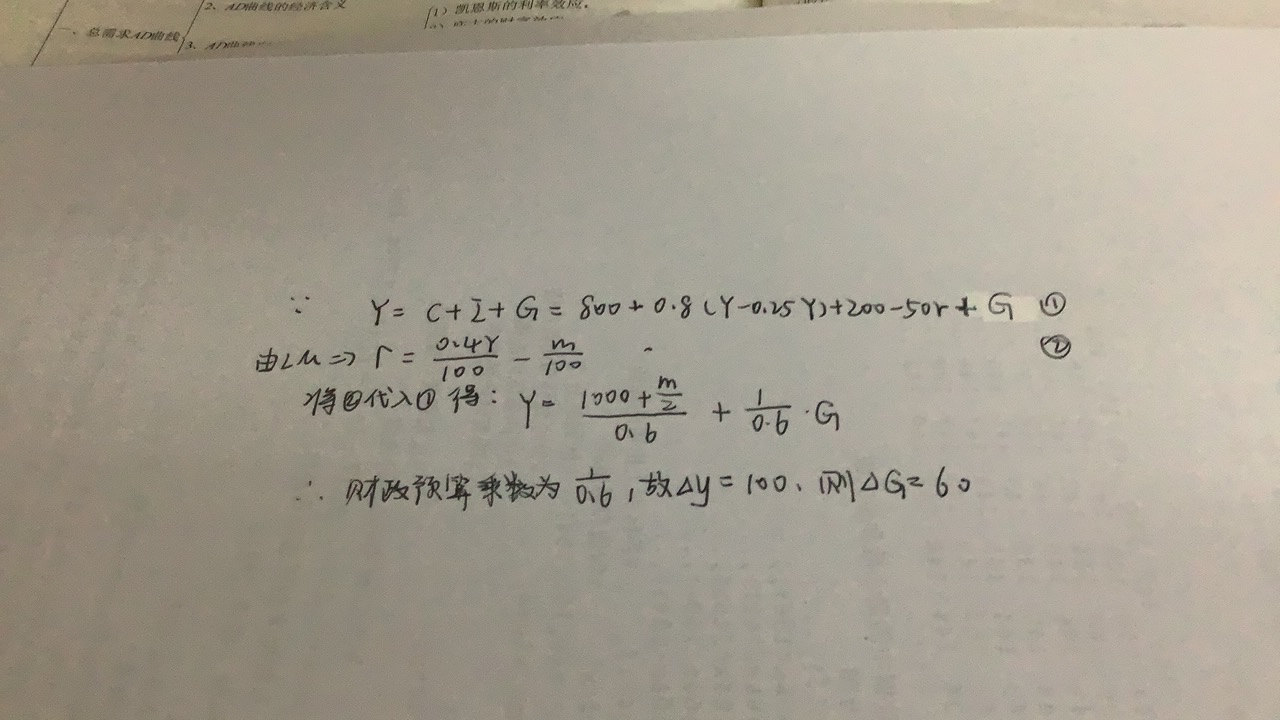 2、AD曲线的经济含义
(1) 凯恩斯的利率效应，
一、总需求AD曲线
3、AD曲线
∵ Y = C + I + G = 800 + 0.8 (Y-0.25Y) + 200 - 50r + G ①
由LM => r = 0.4Y/100 - m/100 ②
将②代入① 得: Y = (1000 + m/2)/0.6 + 1/0.6 · G
∴ 财政预算乘数为 1/0.6 , 故 Δy = 100、则 ΔG = 60